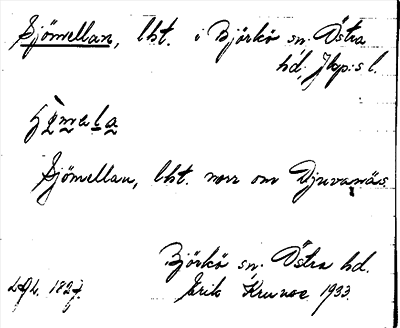 Sjömellan, lht. i Björkö sn. Östra
hd, Jkp:s l.
Sjömellan, lht. norr om Djuvanäs.
Björkö sn. Östra hd.
Erik Krunoe 1933.